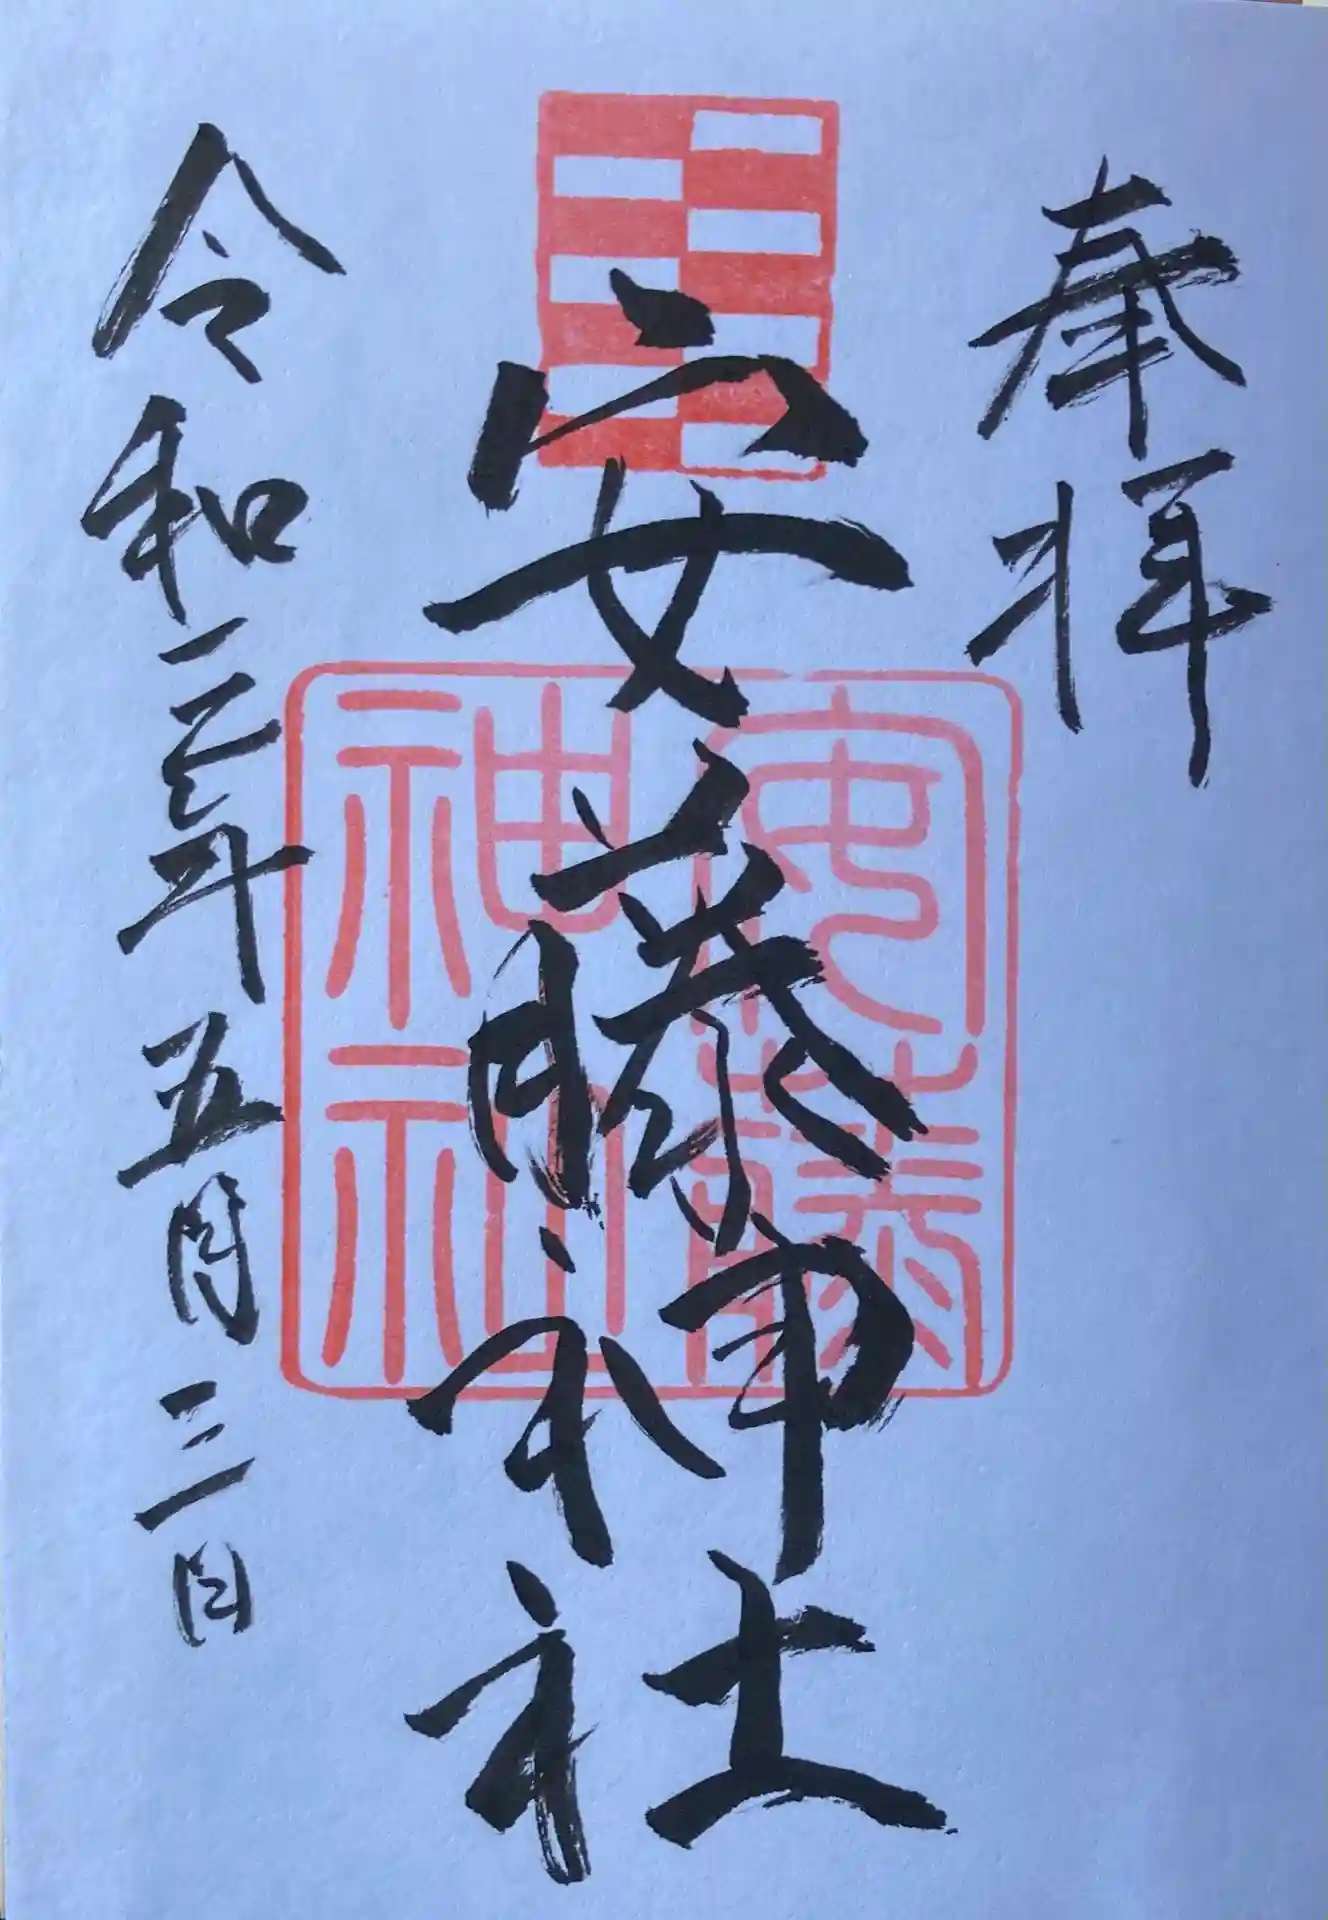 奉拝
安藤神社
安藤
神社
令和三年五月三日